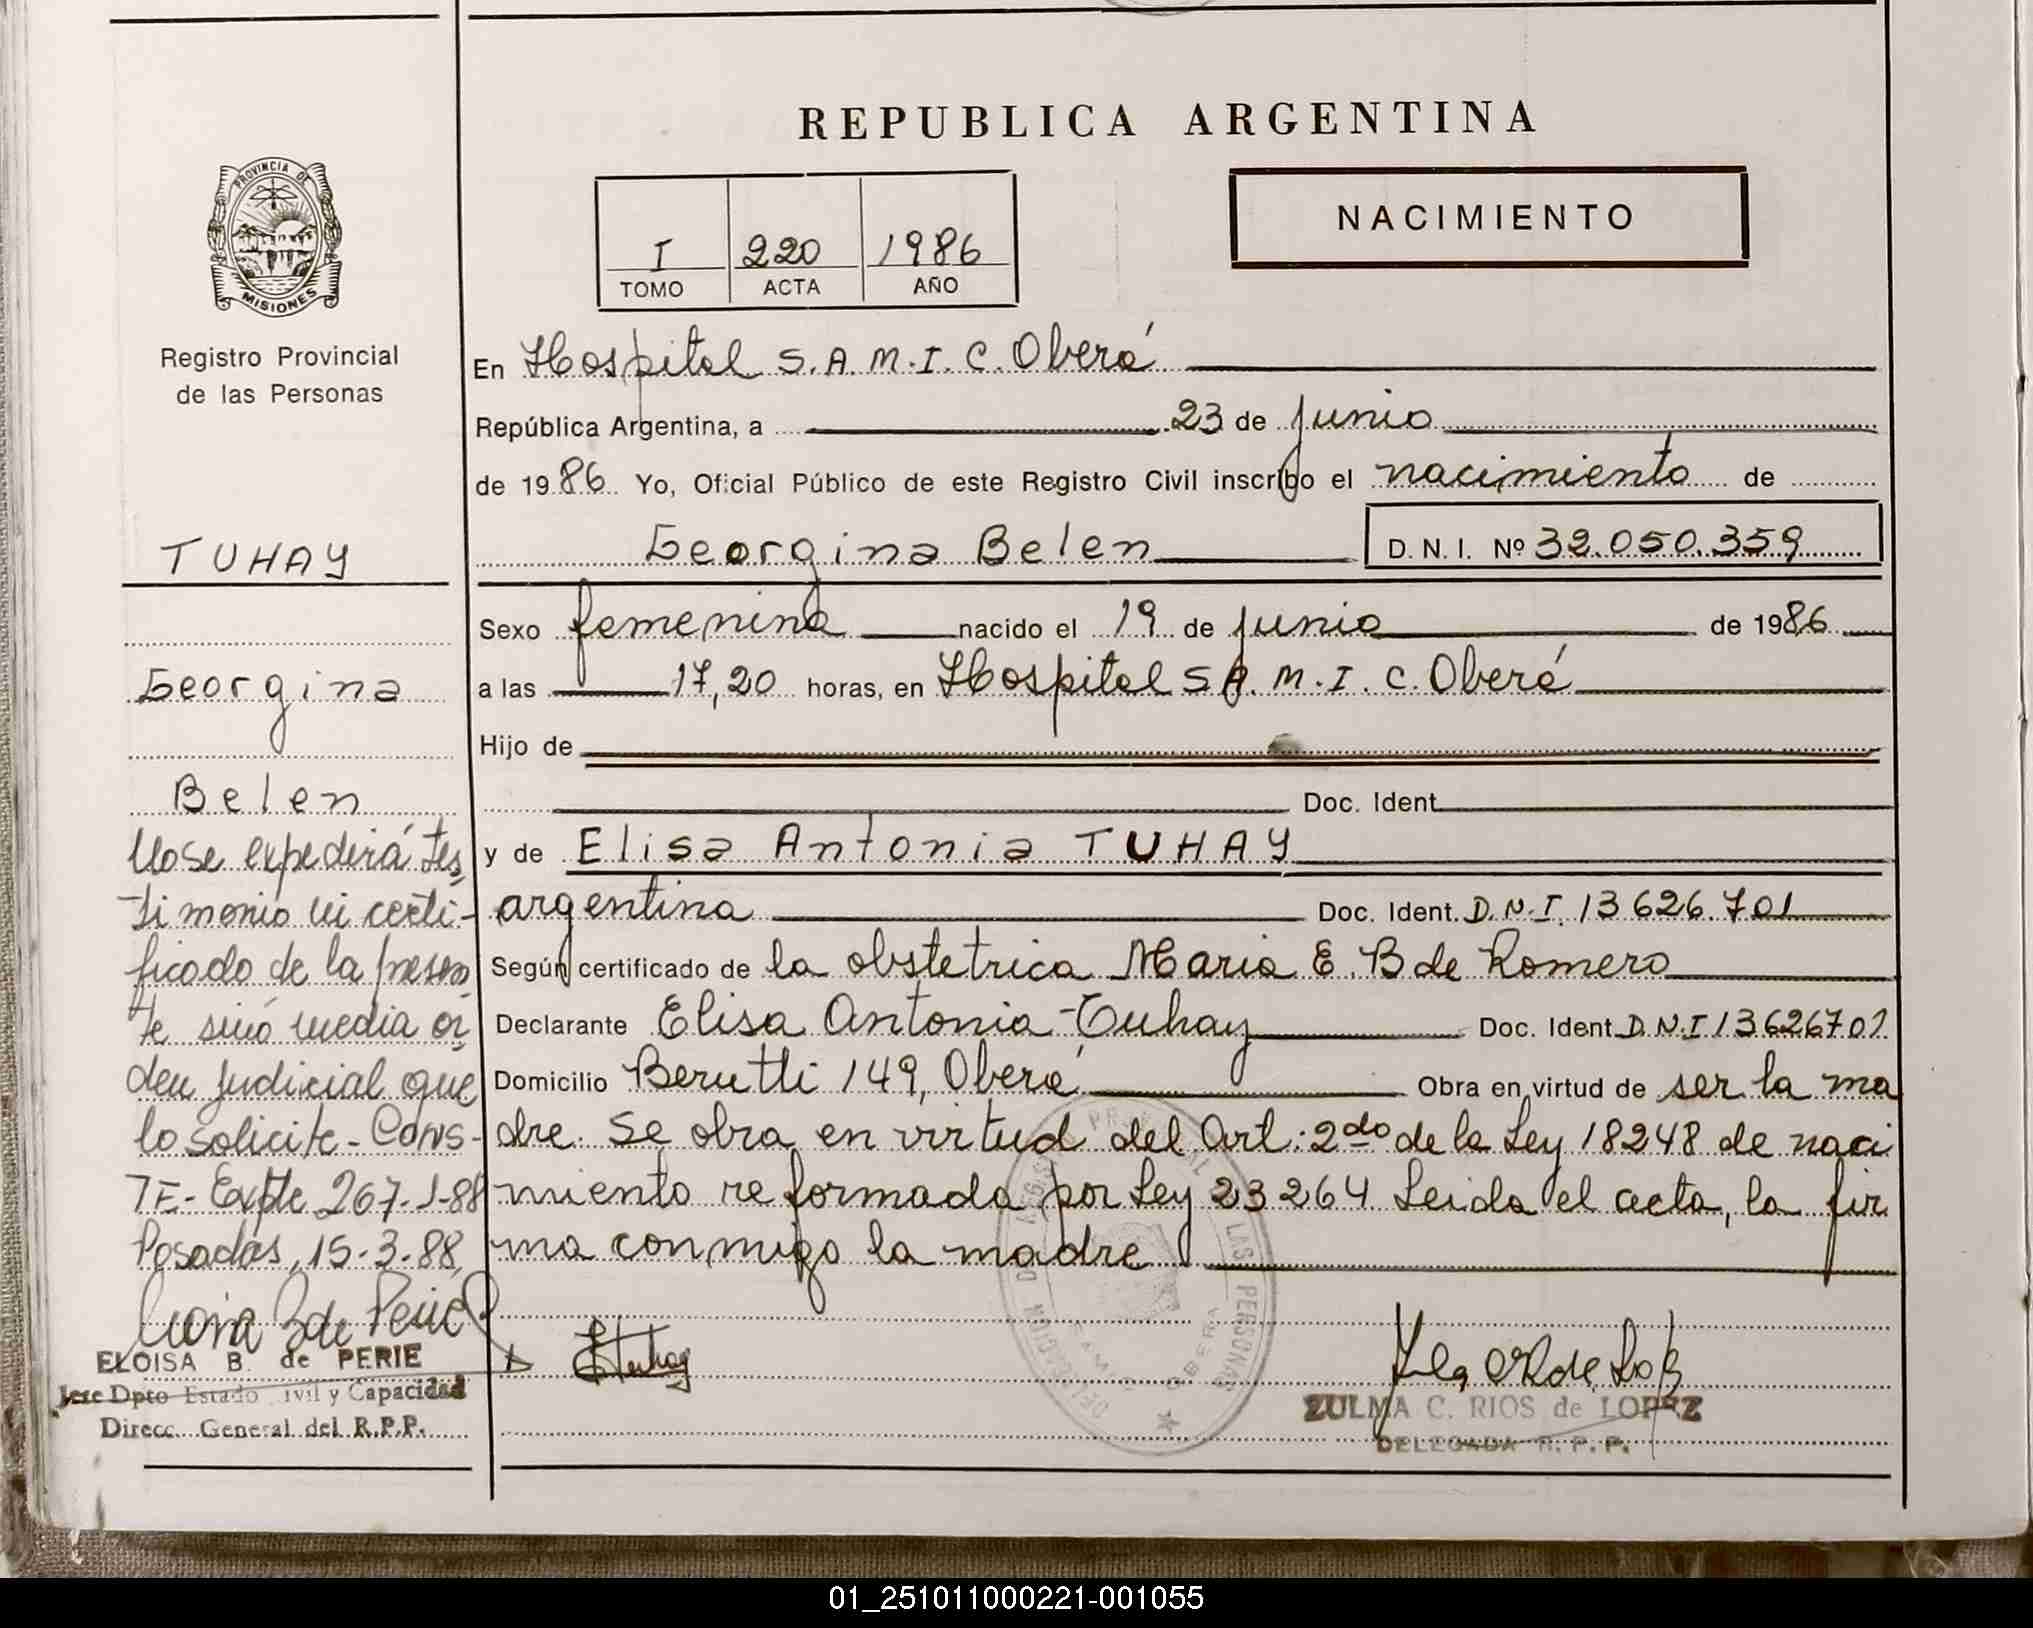 REPUBLICA ARGENTINA
PROVINCIA DE
MISIONES
Registro Provincial
de las Personas
I 220 1986
TOMO ACTA AÑO
NACIMIENTO
En Hospital S.A.M.I.C. Oberá
República Argentina, a 23 de junio
de 1986 Yo, Oficial Público de este Registro Civil inscribo el nacimiento de
Georgina Belen D.N.I. Nº 32.050.359
Sexo femenina nacido el 19 de junio de 1986
a las 17,20 horas, en Hospital S.A.M.I.C. Oberá
Hijo de
Doc. Ident.
y de Elisa Antonia TUHAY
argentina Doc. Ident. D.N.I. 13 626.701
Según certificado de la obstetrica Maria E. B de Romero
Declarante Elisa Antonia Tuhay Doc. Ident. D.N.I 13626701
Domicilio Berutti 149, Oberá Obra en virtud de ser la ma
dre. Se obra en virtud del Art: 2do de la Ley 18248 de naci
miento reformada por Ley 23264 Leida el acta, la fir
ma conmigo la madre
TUHAY
Georgina
Belen
No se expederá tes
timonio ni certi-
ficado de la presen
te sinó media or
den judicial que
lo solicite - Cons-
TE - Expte 267-J-88
Posadas, 15-3-88
ELOISA B. de PERIE
Jefe Dpto Estado ivil y Capacidad
Direcc. General del R.P.P.
ETuhay
ZULMA C. RIOS de LOPEZ
DELEGADA R. P. P.
01_251011000221-001055